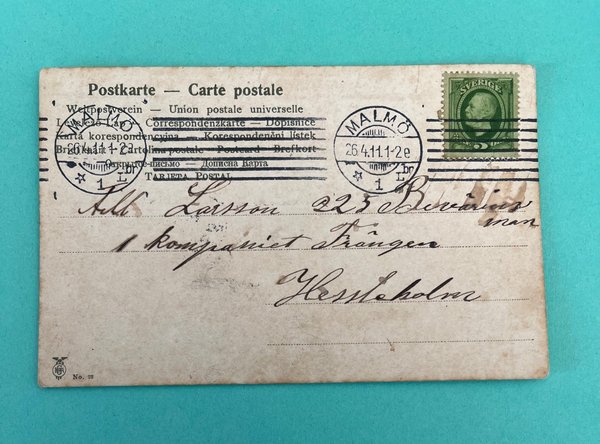 Postkarte — Carte postale
Weltpostverein — Union postale universelle
Correspondenzkarte — Dopisnice
Karta korespondencyjna — Korespondenční lístek
Brefkort — Cartolina postale — Postcard — Brefkort
Открытое письмо — Дописна Карта
TARJETA POSTAL
MALMÖ
26.4.11.1-2
1
MALMÖ
26.4.11.1-2e
1 L br
SVERIGE
5
Larsson 323
man
1 kompaniet Trängen
Hessleholm
No. 22